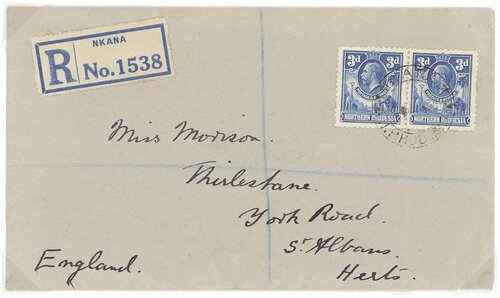 NKANA
R No.1538
3d 3d
NORTHERN RHODESIA NORTHERN RHODESIA
Miss Morison.
Thirlestane.
York Road.
St Albans.
Herts.
England.